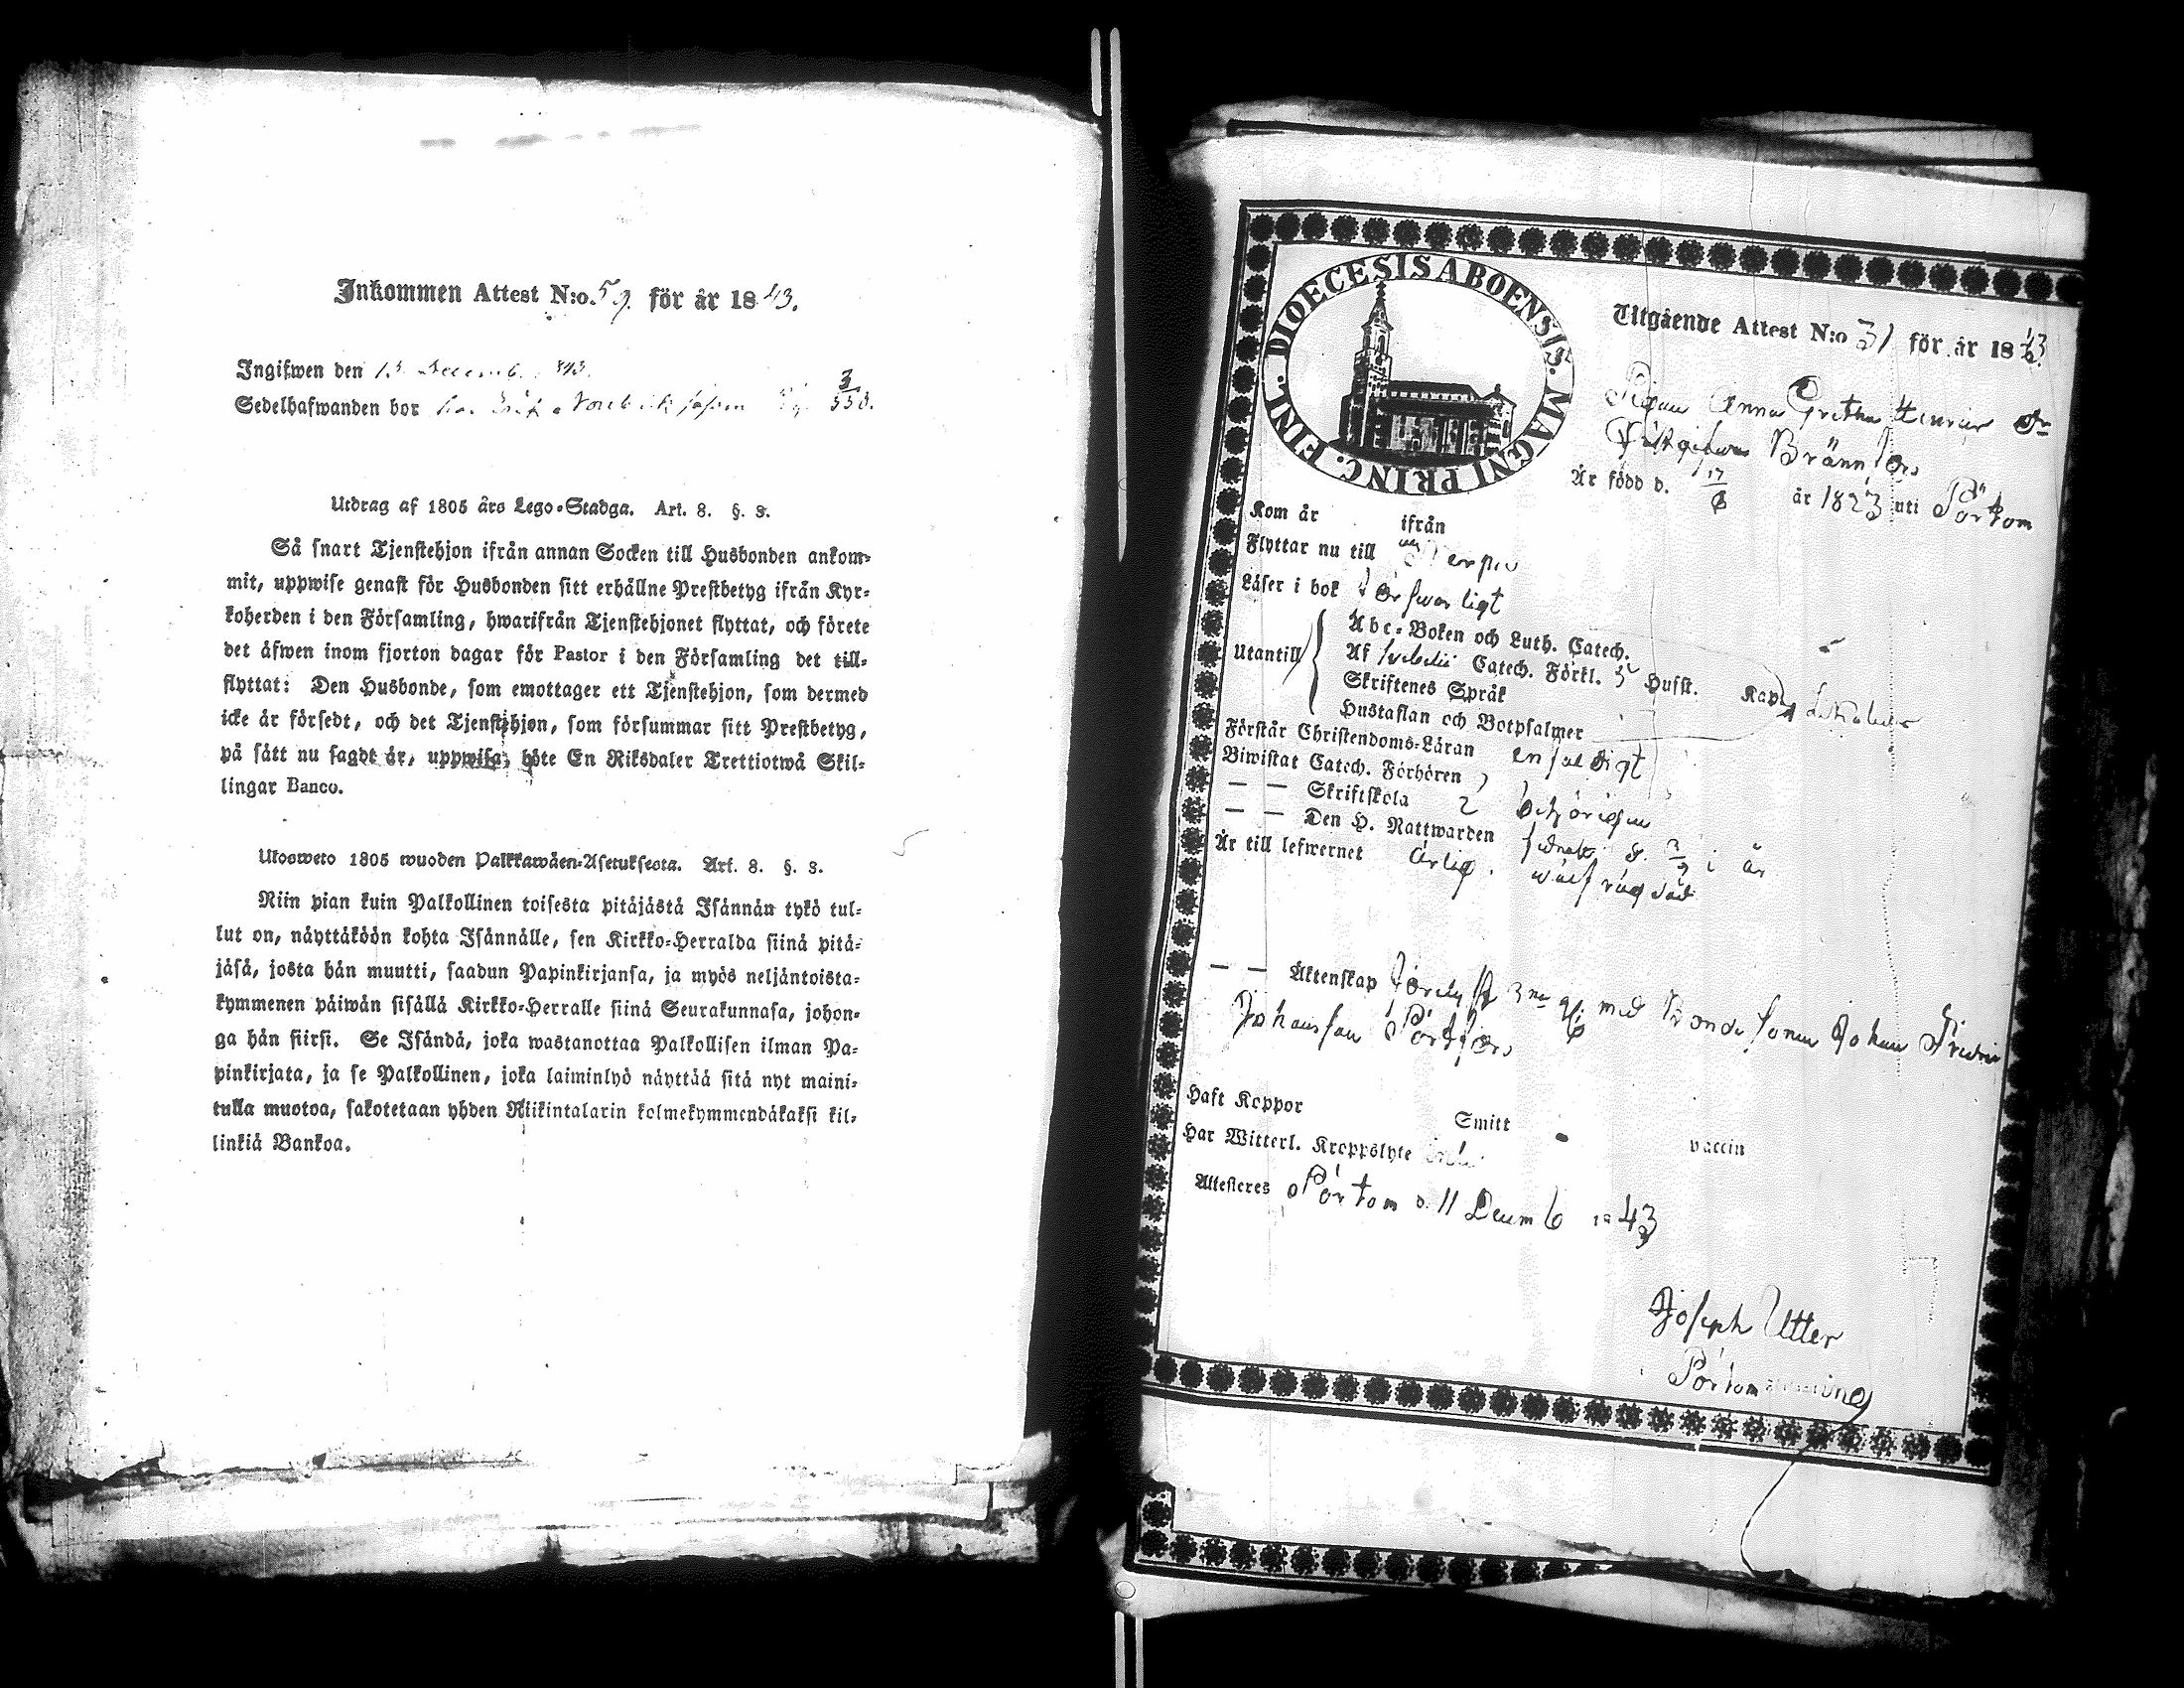 Inkommen Attest N:o 59. för år 1843.
Ingifwen den 13 Decemb. 1843.
Sedelhafwanden bor hos 3/550.
Utdrag af 1805 års Lego-Stadga. Art. 8. §. 3.
Så snart Tjenstehjon ifrån annan Socken till Husbonden ankom-
mit, uppwise genast för Husbonden sitt erhållne Prestbetyg ifrån Kyr-
koherden i den Församling, hwarifrån Tjenstehjonet flyttat, och förete
det äfwen inom fjorton dagar för Pastor i den Församling det till-
flyttat: Den Husbonde, som emottager ett Tjenstehjon, som dermed
icke är försedt, och det Tjenstehjon, som försummar sitt Prestbetyg,
på sätt nu sagdt är, uppwisa, böte En Riksdaler Trettiotwå Skil-
lingar Banco.
Ulosweto 1805 wuoden Palkkawäen-Asetuksesta. Art. 8. §. 3.
Niin pian kuin Palkollinen toisesta pitäjästä Isännän tykö tul-
lut on, näyttäköön kohta Isännälle, sen Kirkko-Herralda siinä pitä-
jäsä, josta hän muutti, saadun Papinkirjansa, ja myös neljäntoista-
kymmenen päiwän sisällä Kirkko-Herralle siinä Seurakunnasa, johon-
ga hän siirsi. Se Isändä, joka wastanottaa Palkollisen ilman Pa-
pinkirjata, ja se Palkollinen, joka laiminlyö näyttää sitä nyt maini-
tulla muotoa, sakotetaan yhden Riikintalarin kolmekymmendäkaksi kil-
linkiä Bankoa.
FINL. DIOECESIS ABOENSIS. MAGNI PRINC.
Utgående Attest N:o 31 för år 1843
Pigan Anna Greta Henrics Dr
Brännfors
Är född d. 17/6 år 1823 uti Pörtom
Kom år ifrån
Flyttar nu till Nerpes
Läser i bok Försvarligt
Utantill
Abc-Boken och Luth. Catech.
Af Svebelii Catech. Förkl. 3 Husst. Kap.
Skriftenes Språk
Hustaflan och Botpsalmer
Förstår Christendoms-Läran enfaldigt
Biwistat Catech. Förhören
— — Skriftskola behörigen
— — Den H. Nattwarden sednast d. 3/9 i år
Är till lefwernet ärlig. wälfrägdad
— — Äktenskap med Bondesonen Johan Fredric
Johansson Pörtfors
Haft Koppor Smitt vaccin
Har Witterl. Kroppslyte
Attesteres Pörtom d. 11 Decemb 1843
Joseph Utter
Pörtom